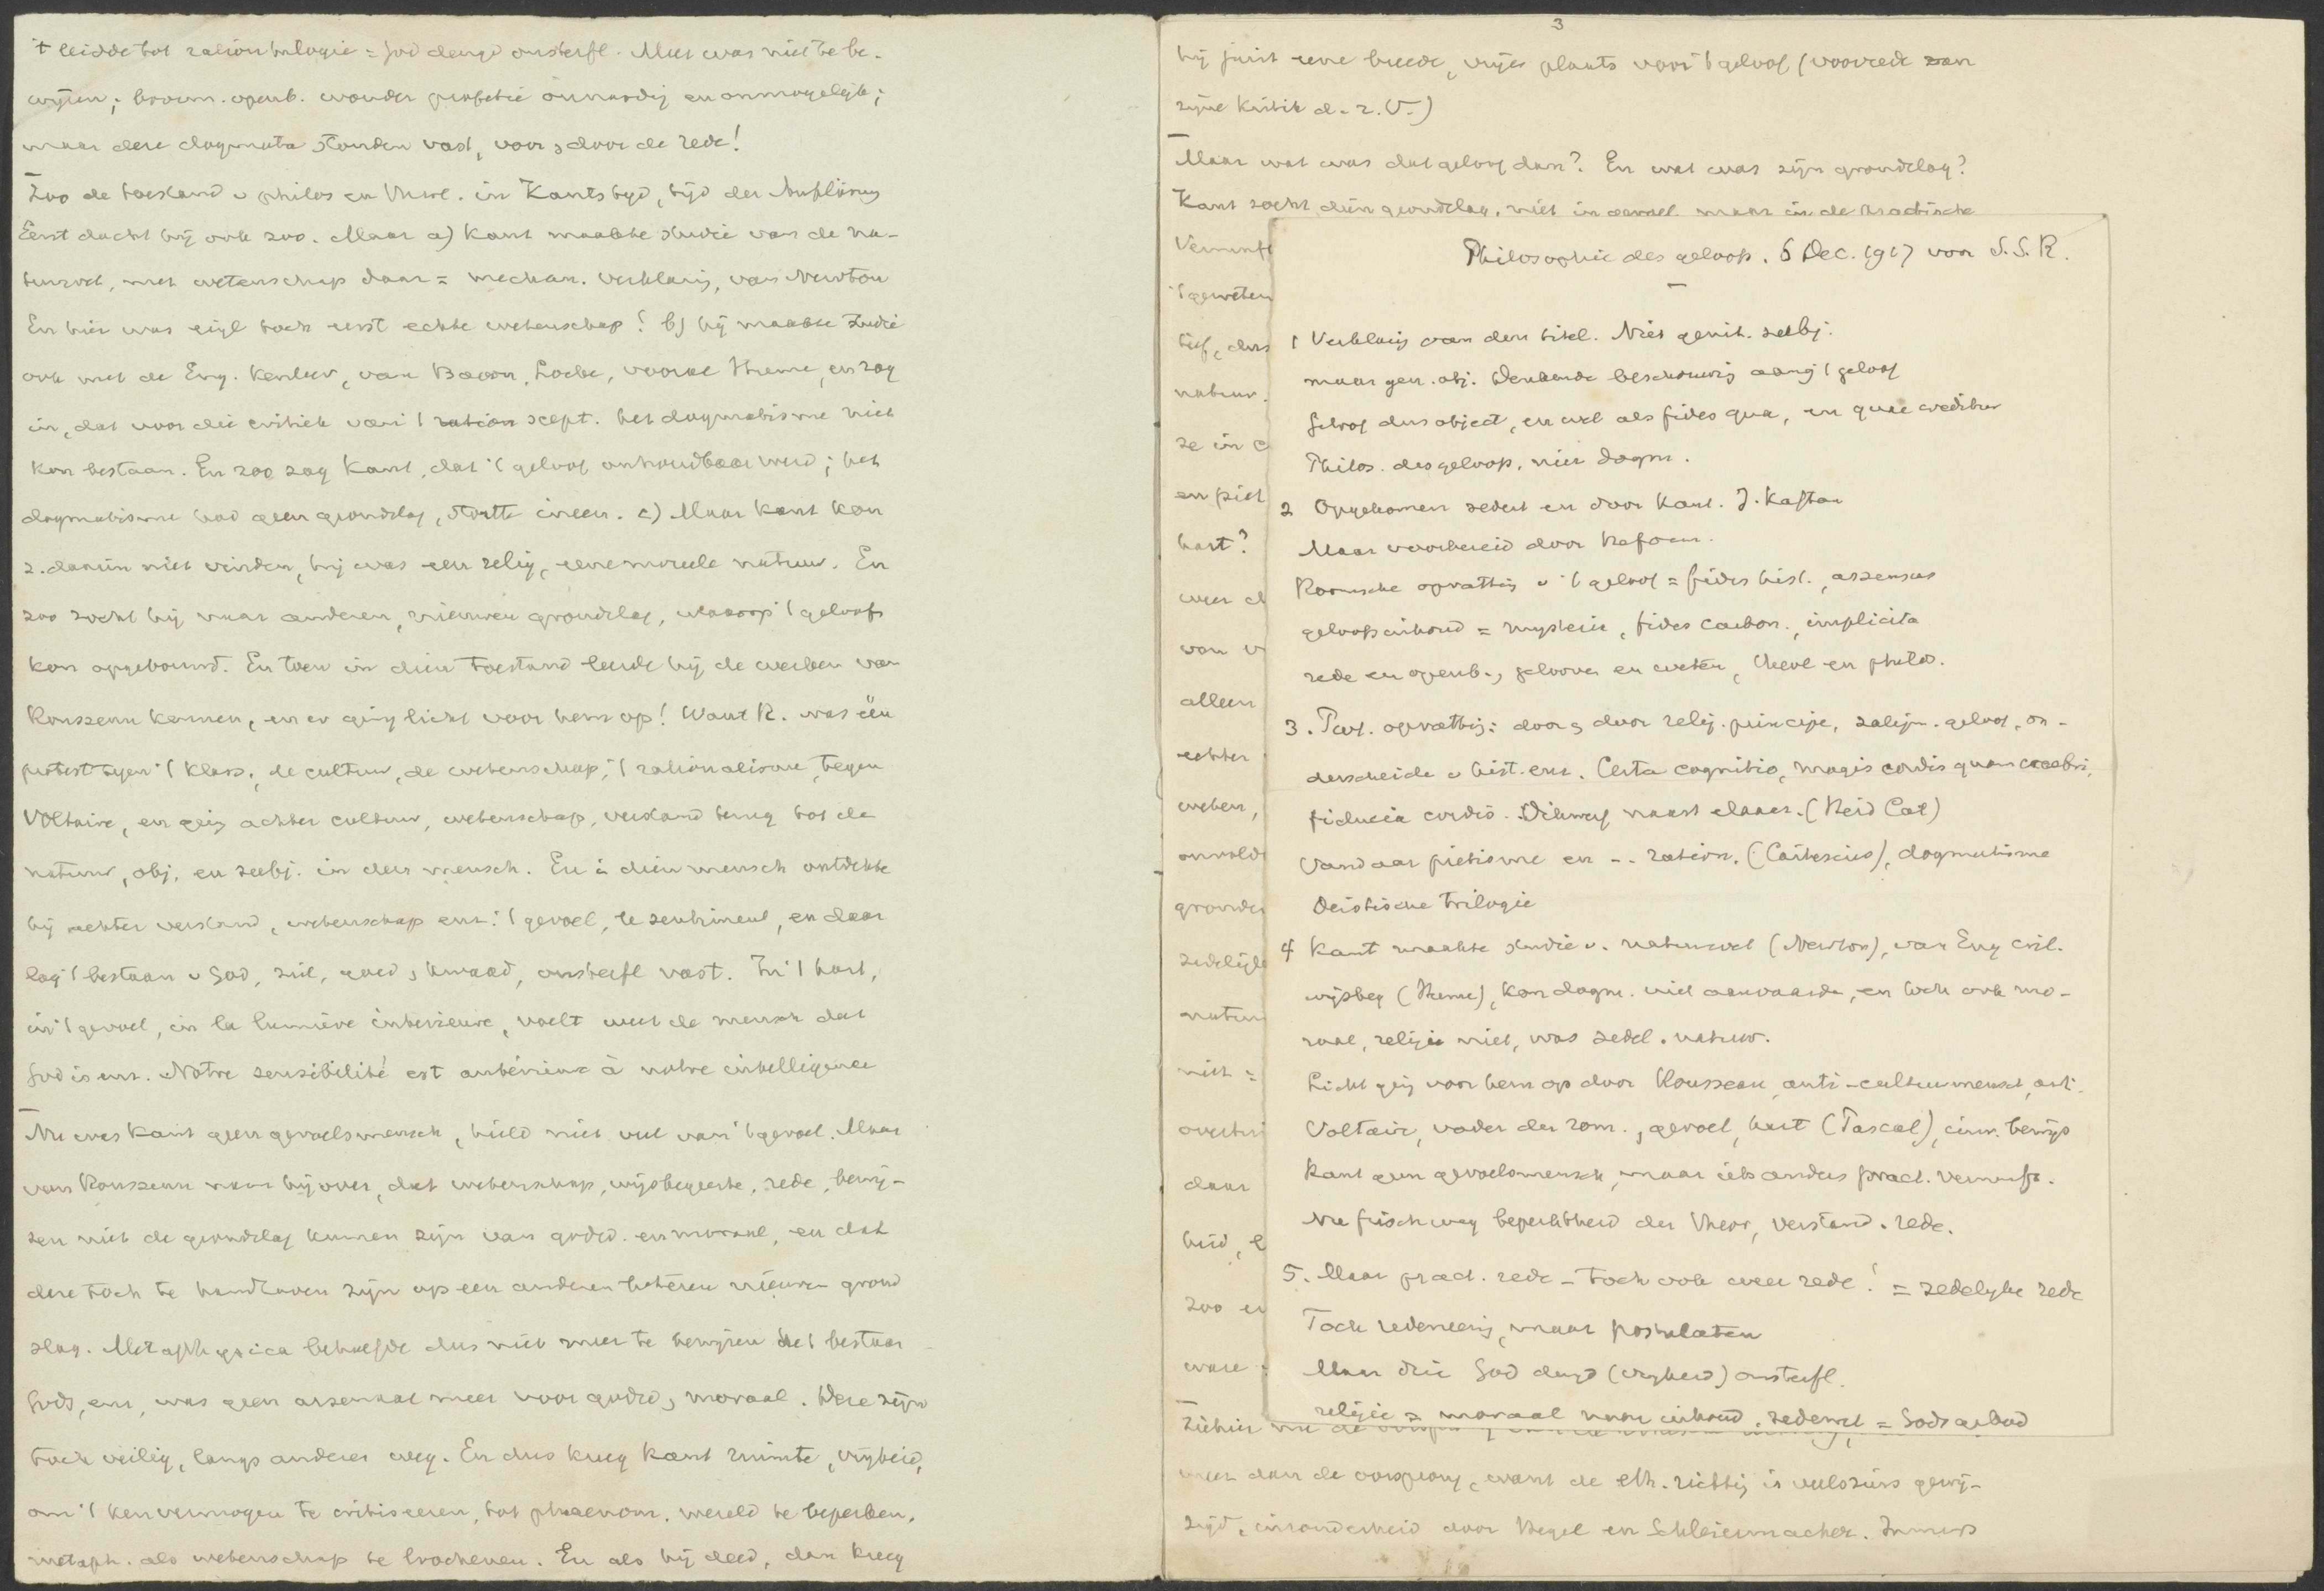 't leidde tot ration trilogie = God deugd onsterfl. Meer was niet te be-
wijzen; bovenn. openb. wonder profetie onnoodig en onmogelijk;
maar deze dogmata stonden vast, voor & door de rede!
Zoo de toestand v philos en theol. in Kants tijd, tijd der Aufklärung
Eerst dacht hij ook zoo. Maar a) Kant maakte studie van de na-
tuurwet, met wetenschap daar = mechan. verklaring, van Newton
En hier was eigl toch eerst echte wetenschap! b) hij maakte studie
ook met de Eng. kenleer, van Bacon, Locke, vooral Hume, en zag
in, dat voor die critiek van 't scept. het dogmatisme niet
kon bestaan. En zoo zag Kant, dat 't geloof onhoudbaar werd; het
dogmatisme had geen grondslag, stortte ineen. c) Maar Kant kon
z. daarin niet vinden, hij was een relig, eene moreele natuur. En
zoo zocht hij naar anderen, nieuwen grondslag, waarop 't geloof
kon opgebouwd. En toen in dien toestand leerde hij de werken van
Rousseau kennen, en er ging licht voor hem op! Want R. was één
protest tegen 't klass., de cultuur, de wetenschap, 't rationalisme, tegen
Voltaire, en ging achter cultuur, wetenschap, verstand terug tot de
natuur, obj. en subj. in den mensch. En in dien mensch ontdekte
hij achter verstand, wetenschap enz: 't gevoel, le sentiment, en daar
lag 't bestaan v God, ziel, goed & kwaad, onsterfl vast. In 't hart,
in 't gevoel, in la lumière intérieure, voelt weet de mensch dat
God is enz. Notre sensibilité est antérieure à notre intelligence
Nu was Kant geen gevoelsmensch, hield niet veel van 't gevoel. Maar
van Rousseau nam hij over, dat wetenschap, wijsbegeerte, rede, bewij-
zen niet de grondslag kunnen zijn van godsd. en moraal, en dat
deze toch te handhaven zijn op een anderen beteren nieuwen grond
slag. Metaphysica behoefde dus niet meer te bewijzen het bestaan
Gods, enz, was geen arsenaal meer voor godsd & moraal. Deze zijn
toch veilig, langs anderen weg. En dus kreeg Kant ruimte, vrijheid,
om 't kenvermogen te critiseeren, tot phaenom. wereld te beperken,
metaph. als wetenschap te loochenen. En als hij deed, dan kreeg
3
hij juist eene breede, vrije plaats voor 't geloof (voorrede van
zijne Kritik d. r. V.)
Maar wat was dat geloof dan? En wat was zijn grondslag?
Kant zocht dien grondslag, niet in gevoel maar in de practische
Vernunft
't geweten
tief, dus
natuur.
ze in
en piet
hart?
weer
van
alleen
echter
weten,
onvold
gronde
zedelijke
natuur
niet =
overtui
daar
heid,
zoo
ware
Philosophie des geloofs. 6 Dec. 1917 voor S.S.R.
1 Verklaring van den titel. Niet genit. subj.
maar gen. obj. denkende beschouwing aang 't geloof
Geloof dus object, en wel als fides qua, en quae creditur
Philos. des geloofs, niet dogm.
2 Opgekomen sedert en door Kant. J. Kaftan
Maar voorbereid door Reform.
Roomsche opvatting v 't geloof = fides hist., assensus
geloofsinhoud = mysterie, fides carbon., implicita
rede en openb., gelooven en weten, theol en philos.
3. Prot. opvatting: door & door relig. principe, zaligm. geloof, on-
derscheide v hist. enz. Certa cognitio, magis cordis quam cerebri,
fiducia cordis. Dikwerf naast elkaar. (Heid Cat)
Vandaar pietisme en -- ration. (Cartesius), dogmatisme
Deistische trilogie
4 Kant maakte studie v. natuurwet (Newton), van Eng crit.
wijsbeg (Hume), kon dogm. niet aanvaarde, en toch ook mo-
raal, religie niet, was zedel. natuur.
Licht ging voor hem op door Rousseau, anti-cultuurmensch, anti-
Voltaire, vader der rom., gevoel, hart (Pascal), inw. bewijs
Kant geen gevoelsmensch, maar iets anders pract. Vernunft.
Nu frischweg beperktheid der theor, verstand. rede.
5. Maar pract. rede - toch ook weer rede! = zedelijke rede
Toch redeneering, maar postulaten
Maar drie God deugd (vrijheid) onsterfl.
religie = moraal naar inhoud, zedewet = Gods gebod
Ziehier nu de
meer dan de oorsprong, want de eth. richting is veelszins gewij-
zigd, inzonderheid door Hegel en Schleiermacher. Immers